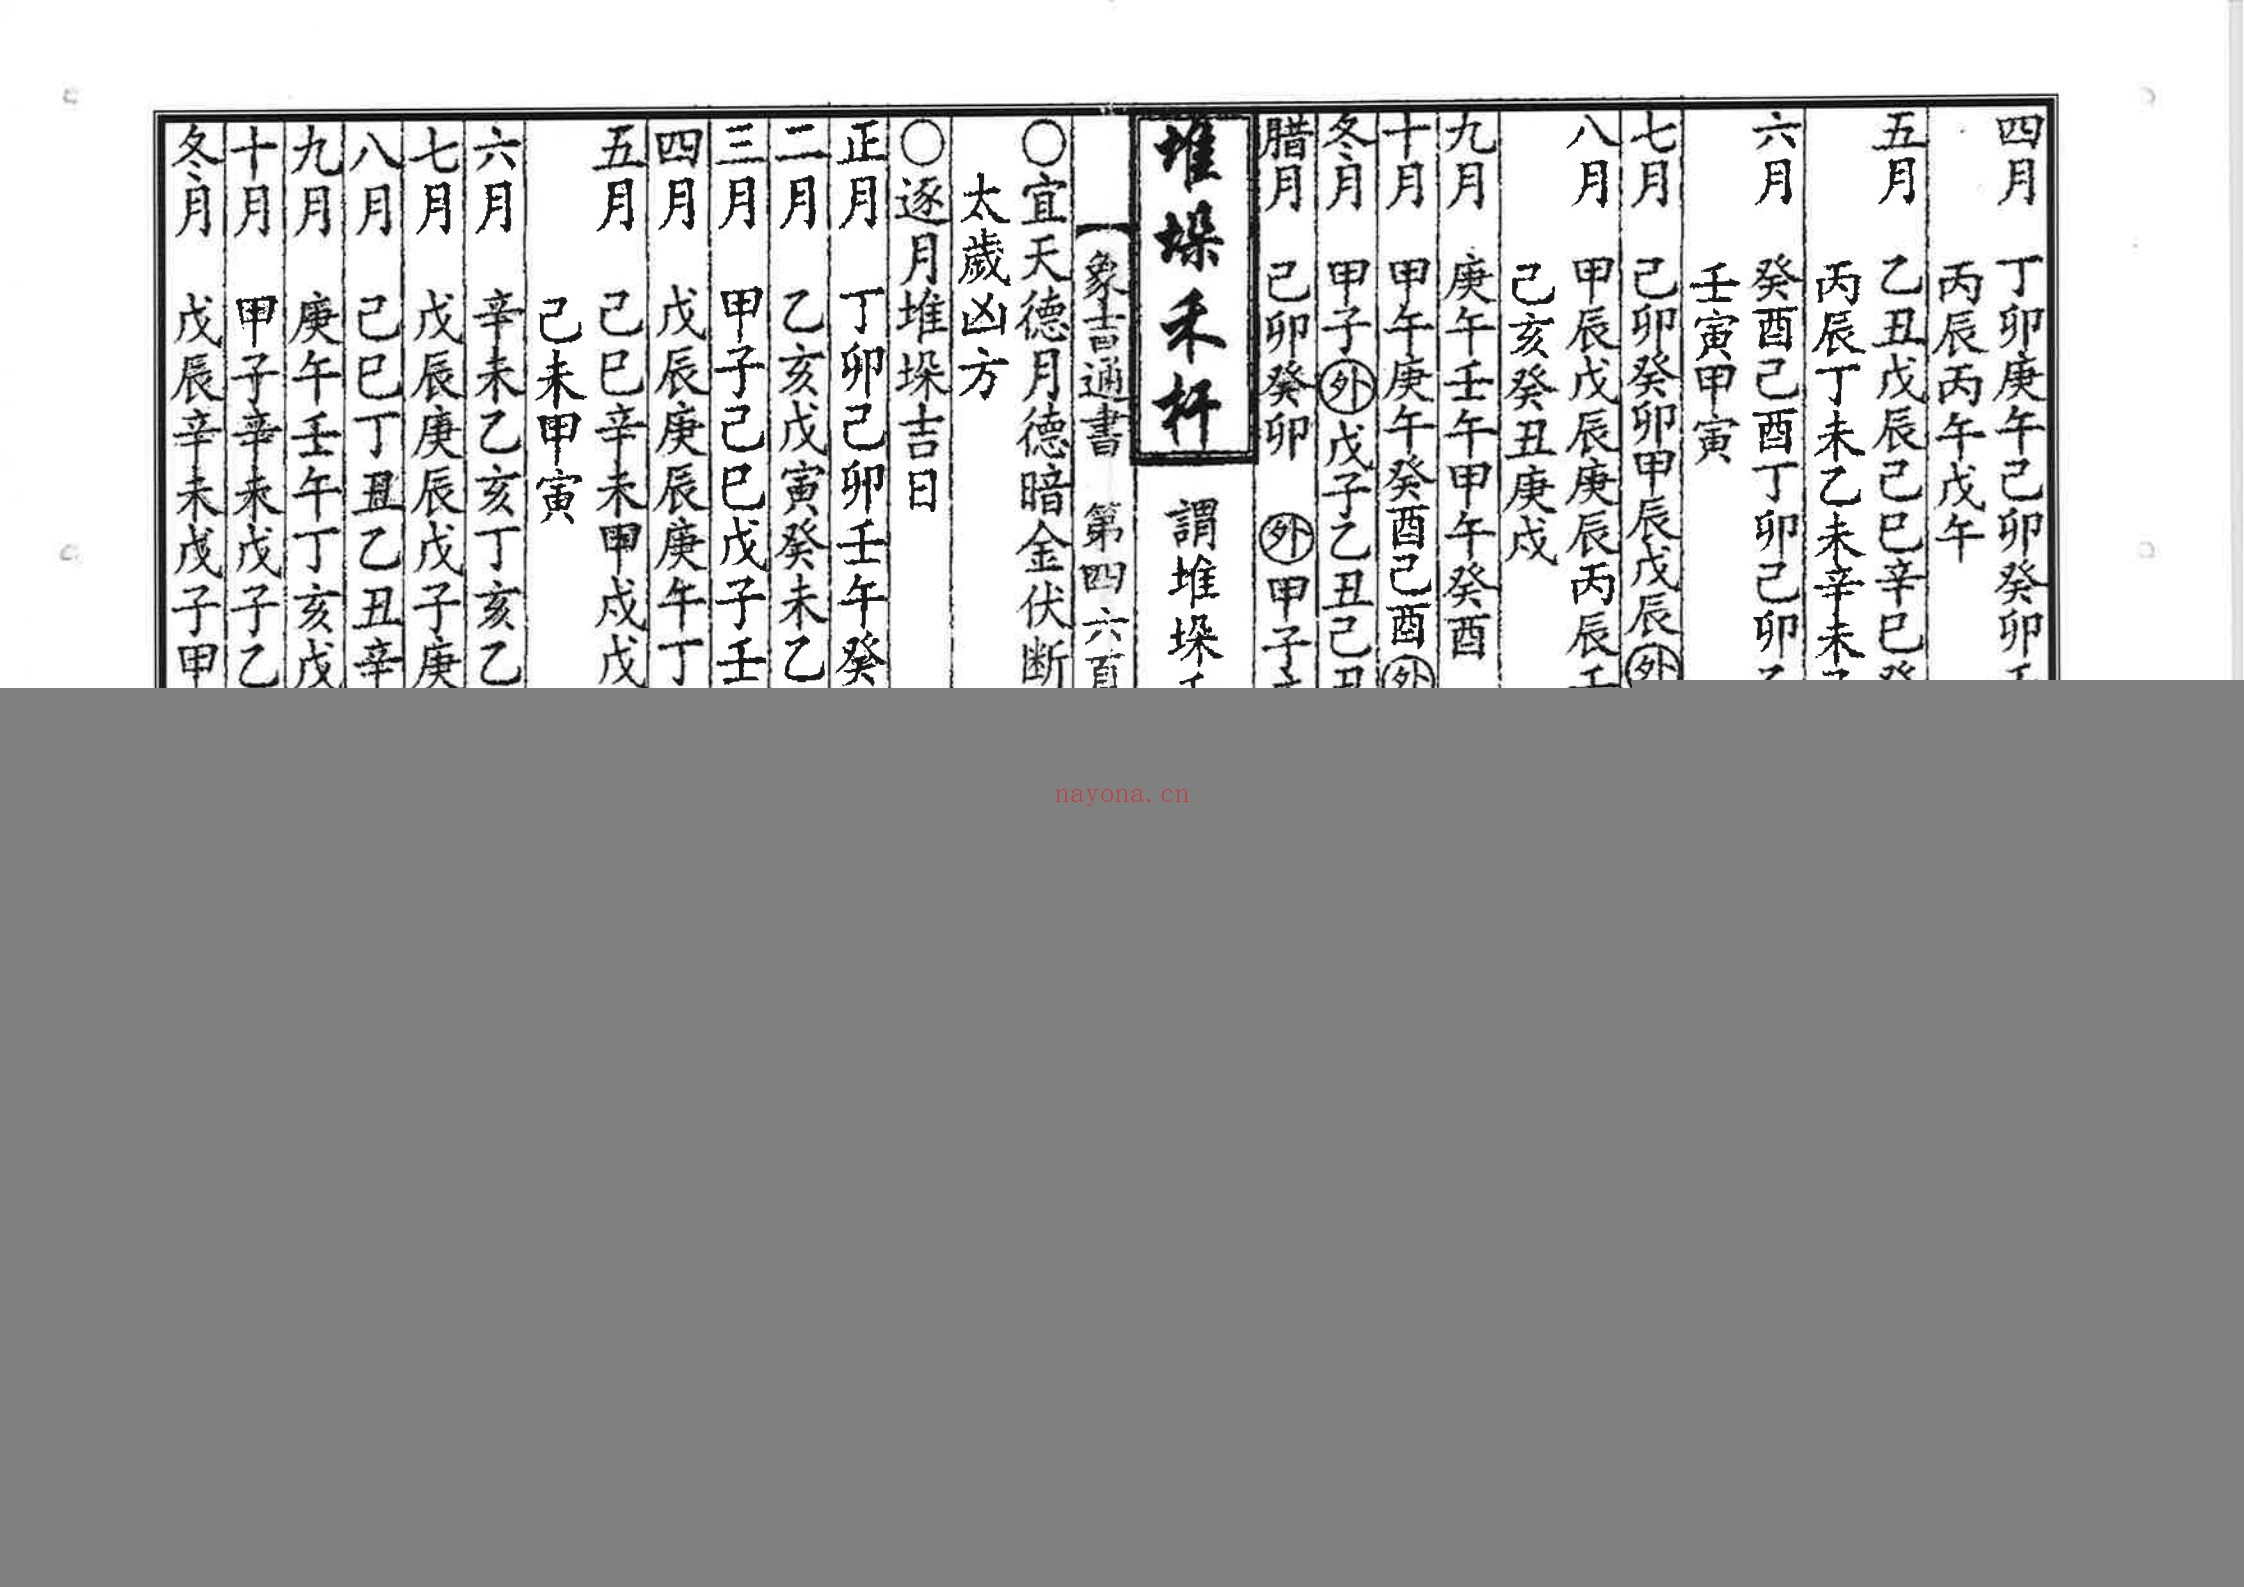 四月　丁卯庚午己卯癸卯
丙辰丙午戊午
五月　乙丑戊辰己巳辛巳癸
丙辰丁未乙未辛未
六月　癸酉己酉丁卯己卯
壬寅甲寅
七月　己卯癸卯甲辰戊辰外
八月　甲辰戊辰庚辰丙辰壬
己亥癸丑庚戌
九月　庚午壬午甲午癸酉
十月　甲午庚午癸酉己酉外
冬月　甲子外戊子乙丑己丑
腊月　己卯癸卯　外甲子
堆垛禾杆　謂堆垛
【象吉通書　第四六頁
〇宜天德月德暗金伏断
太歲凶方
〇逐月堆垛吉日
正月　丁卯己卯壬午癸
二月　乙亥戊寅癸未乙
三月　甲子己巳戊子壬
四月　戊辰庚辰庚午丁
五月　己巳辛未甲戌戊
己未甲寅
六月　辛未乙亥丁亥乙
七月　戊辰庚辰戊子庚
八月　己巳丁丑乙丑辛
九月　庚午壬午丁亥戊
十月　甲子辛未戊子乙
冬月　戊辰辛未戊子甲
nayona.cn